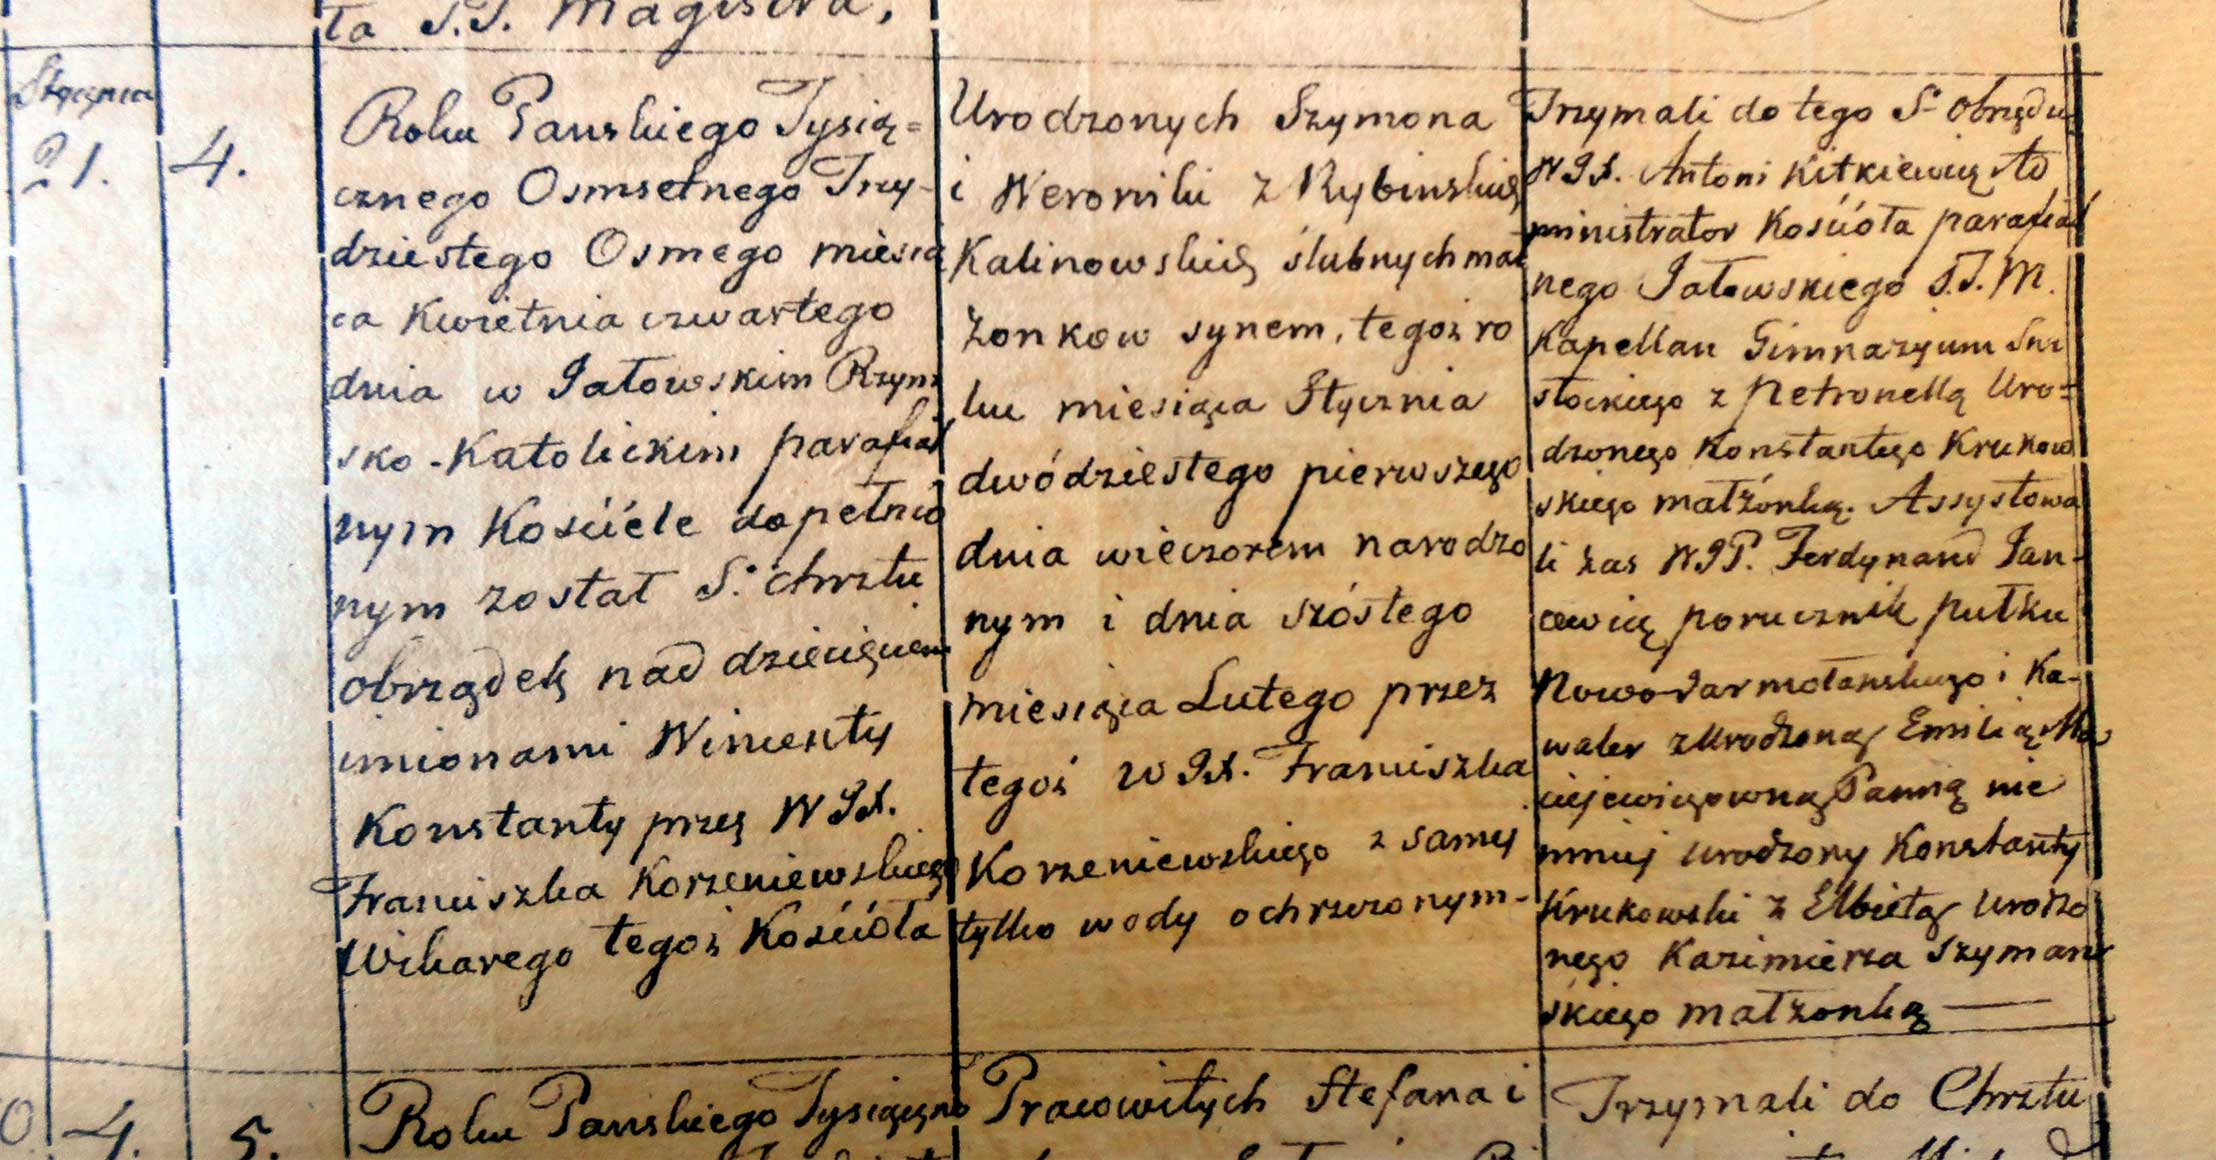 ta S.T. Magistra,
Stycznia
21.
4.
Roku Pańskiego Tysią=
cznego Osmsetnego Trzy-
dziestego Osmego miesią
ca Kwietnia czwartego
dnia w Jałowskim Rzym
sko-Katolickim parafial
nym Kościele dopełnio
nym został S. chrztu
obrządek nad dziecięciem
imionami Wincenty
Konstanty przez WJX.
Franciszka Korzeniewskiego
Wikarego tegoż Kościoła
Urodzonych Szymona
i Weroniki z Rybinskich
Kalinowskich ślubnych mał
żonkow synem, tegoż ro
ku miesiąca Stycznia
dwódziestego pierwszego
dnia wieczorem narodzo
nym i dnia szóstego
miesiąca Lutego przez
tegoż WJX. Franciszka
Korzeniewskiego z samej
tylko wody ochrzczonym-
Trzymali do tego S. obrzędu
WJX. Antoni Kitkiewicz Ad
ministrator Kościoła parafial
nego Jałowskiego S.T.M.
Kapellan Gimnazyum Swi
słockiego z Petronellą Uro=
dzonego Konstantego Krukow
skiego małżonką. Assystowa
li zas WJP. Ferdynand Jan-
cewicz porucznik pułku
Nowo-Jarmołanskiego i Ka-
waler z Urodzoną Emilią Ma
ciejewiczowną Panną nie
mniej urodzony Konstanty
Krukowski z Elbietą urodzo
nego Kazimierza Szyman
skiego małżonką —
4.
5.
Roku Pańskiego Tysiączno
Pracowitych Stefana i
Trzymali do Chrztu